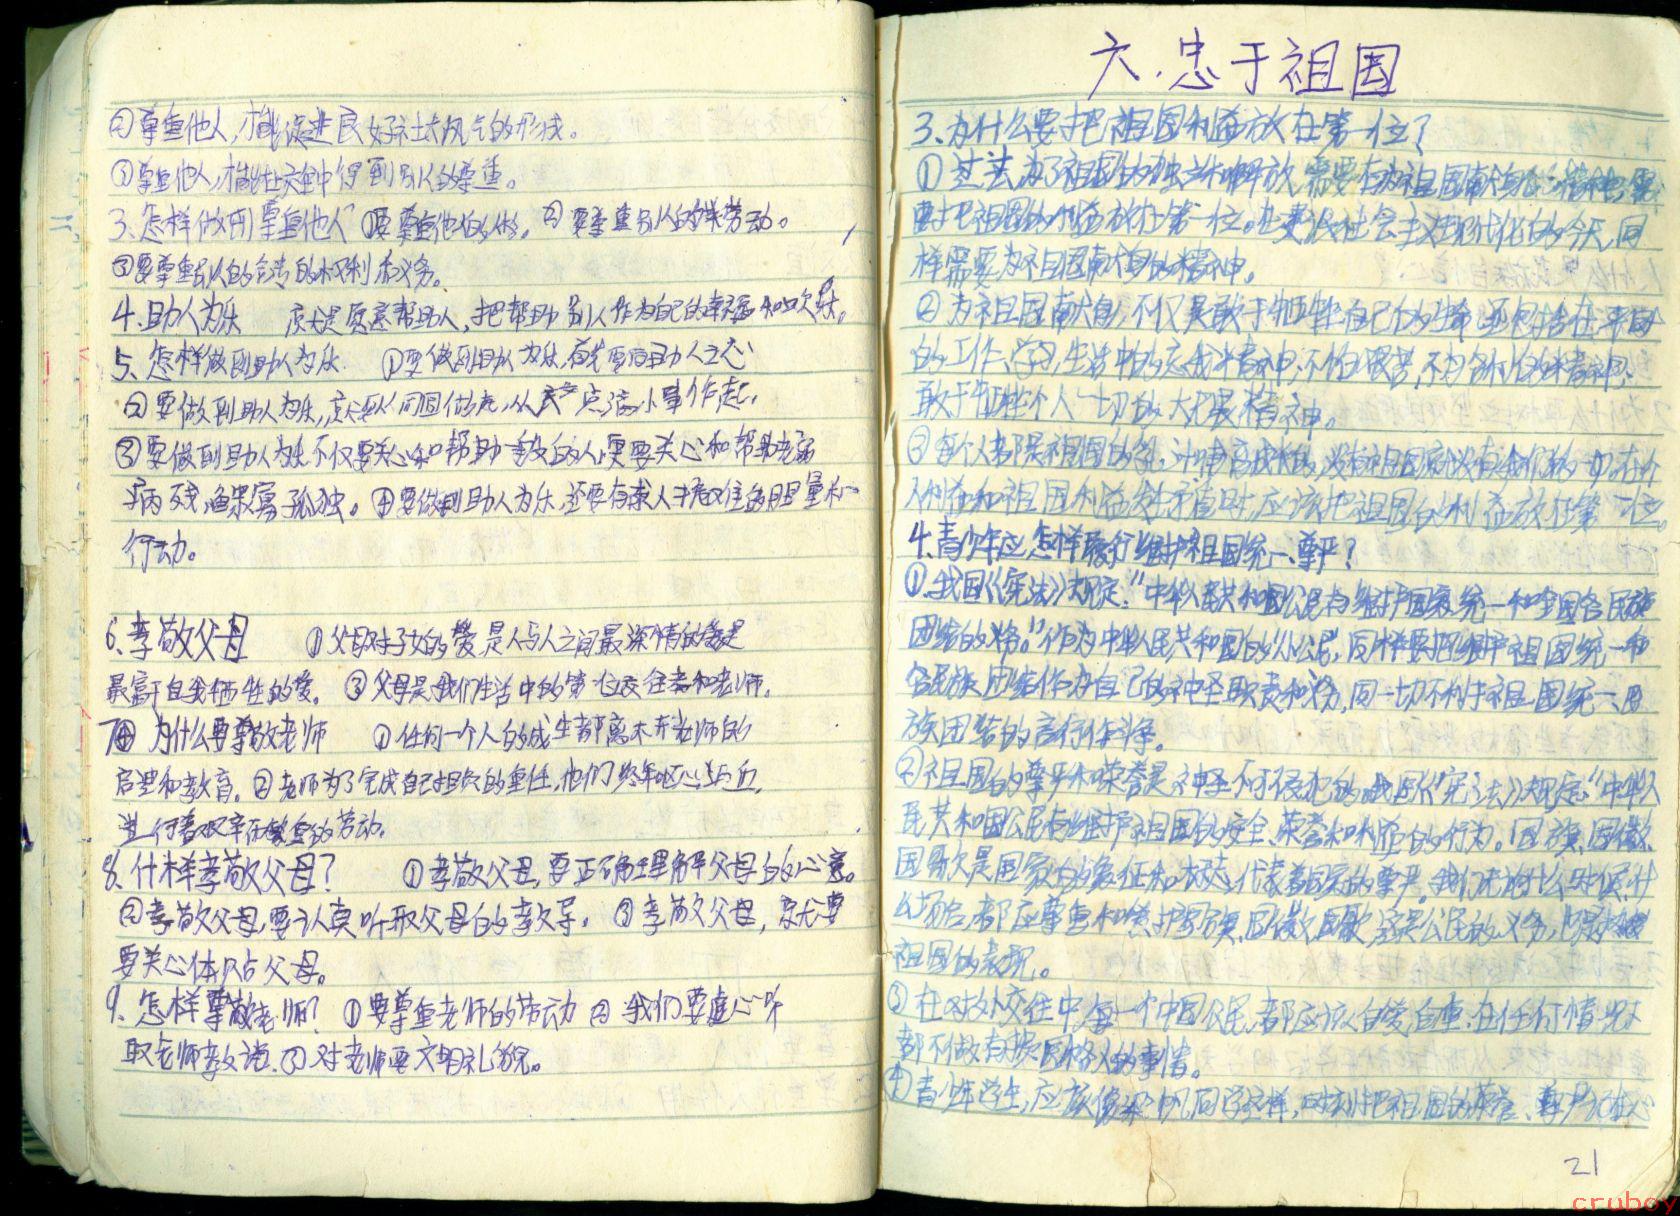 ②尊重他人,才能促进良好社太风气的形成。
③尊重他人,才能在社交中得到别人的尊重。
3、怎样做到尊重他人 ①要尊重他人的人格。②要尊重别人的劳动。
③要尊重别人的合法的权利和义务。
4、助人为乐 就是愿意帮助人,把帮助别人作为自己的幸福和欢乐。
5、怎样做到助人为乐 ①要做到助人为乐,首先要有助人之心
②要做到助人为乐,就要从何做起,从点滴小事作起,
③要做到助人为乐不仅要关心和帮助的人,更要关心和帮助老弱
病残鳏寡孤独。④要做到助人为乐,还要有救人于危难的胆量和
行动。
6、孝敬父母 ①父母对子女的爱是人与人之间最深情的爱是
最富于自我牺牲的爱。③父母是我们生活中的第一位交往者和老师。
7、为什么要尊敬老师 ①任何一个人的成生都离不开老师的
启迪和教育。②老师为了完成自己担负的重任,他们终年呕心沥血,
进行着艰辛而繁重的劳动。
8、什样孝敬父母? ①孝敬父母,要正确理解父母的心意。
②孝敬父母,要认真听取父母的教导。③孝敬父母,就要
要关心体贴父母。
9、怎样尊敬老师?①要尊重老师的劳动②我们要虚心听
取老师教诲.③对老师要文明礼貌。
六、忠于祖国
3、为什么要把祖国利益放在第一位?
①过去,为了祖国的独立和解放,需要有为祖国献身的精神,需
要把祖国的利益放在第一位。在建设社会主义现代化的今天,同
样需要为祖国献身的精神。
②为祖国献身,不仅是敢于牺牲自己的生命,还包括在平时
的工作、学习,生活中的忘我精神,不怕艰苦,不为名利的精神,
敢于牺牲个人一切的大无畏精神。
③每个人都是祖国的,没有祖国就没有我们的一切,在个
人利益和祖国利益发生矛盾时,应该把祖国的利益放在第一位。
4、青少年应怎样履行维护祖国统一、尊严?
①、我国《宪法》规定:“中华人民共和国公民有维护国家统一和全国各民族
团结的义务。”作为中华人民共和国的小公民,同样要把维护祖国统一和
各民族团结作为自己的神圣职责和义务,同一切不利于祖国统一、民
族团结的言行作斗争。
②祖国的尊严和荣誉是神圣不可侵犯的。我国《宪法》规定:“中华人
民共和国公民有维护祖国的安全、荣誉和利益的行为。国旗、国徽、
国歌是国家的象征和标志,代表着国家的尊严。我们无论什么时候,什
么场合,都应尊重和爱护国旗、国徽、国歌,这是公民的义务,也是
祖国的表现。
③在对外交往中,每一个中国公民,都应该自爱、自重,在任何情况下
都不做有损国格人格的事情。
④青少年学生,应该像梁帆同学这样,时刻把祖国的荣誉、尊严记在心
21
cruboy